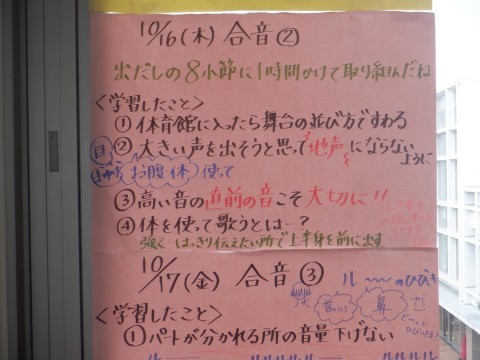 10/16(木) 合音②
出だしの8小節に1時間かけて取り組んだね
<学習したこと>
① 体育館に入ったら舞台の並び方ですわる
② 大きい声を出そうと思って地声にならないように
目
お腹 体 使って
③ 高い音の直前の音こそ大切に!!
④ 体を使って歌うとは…?
強く・はっきり伝えたい所で上半身を前に出す
10/17(金) 合音③
ル〜〜のひびき
鼻
<学習したこと>
① パートが分かれる所の音量下げない